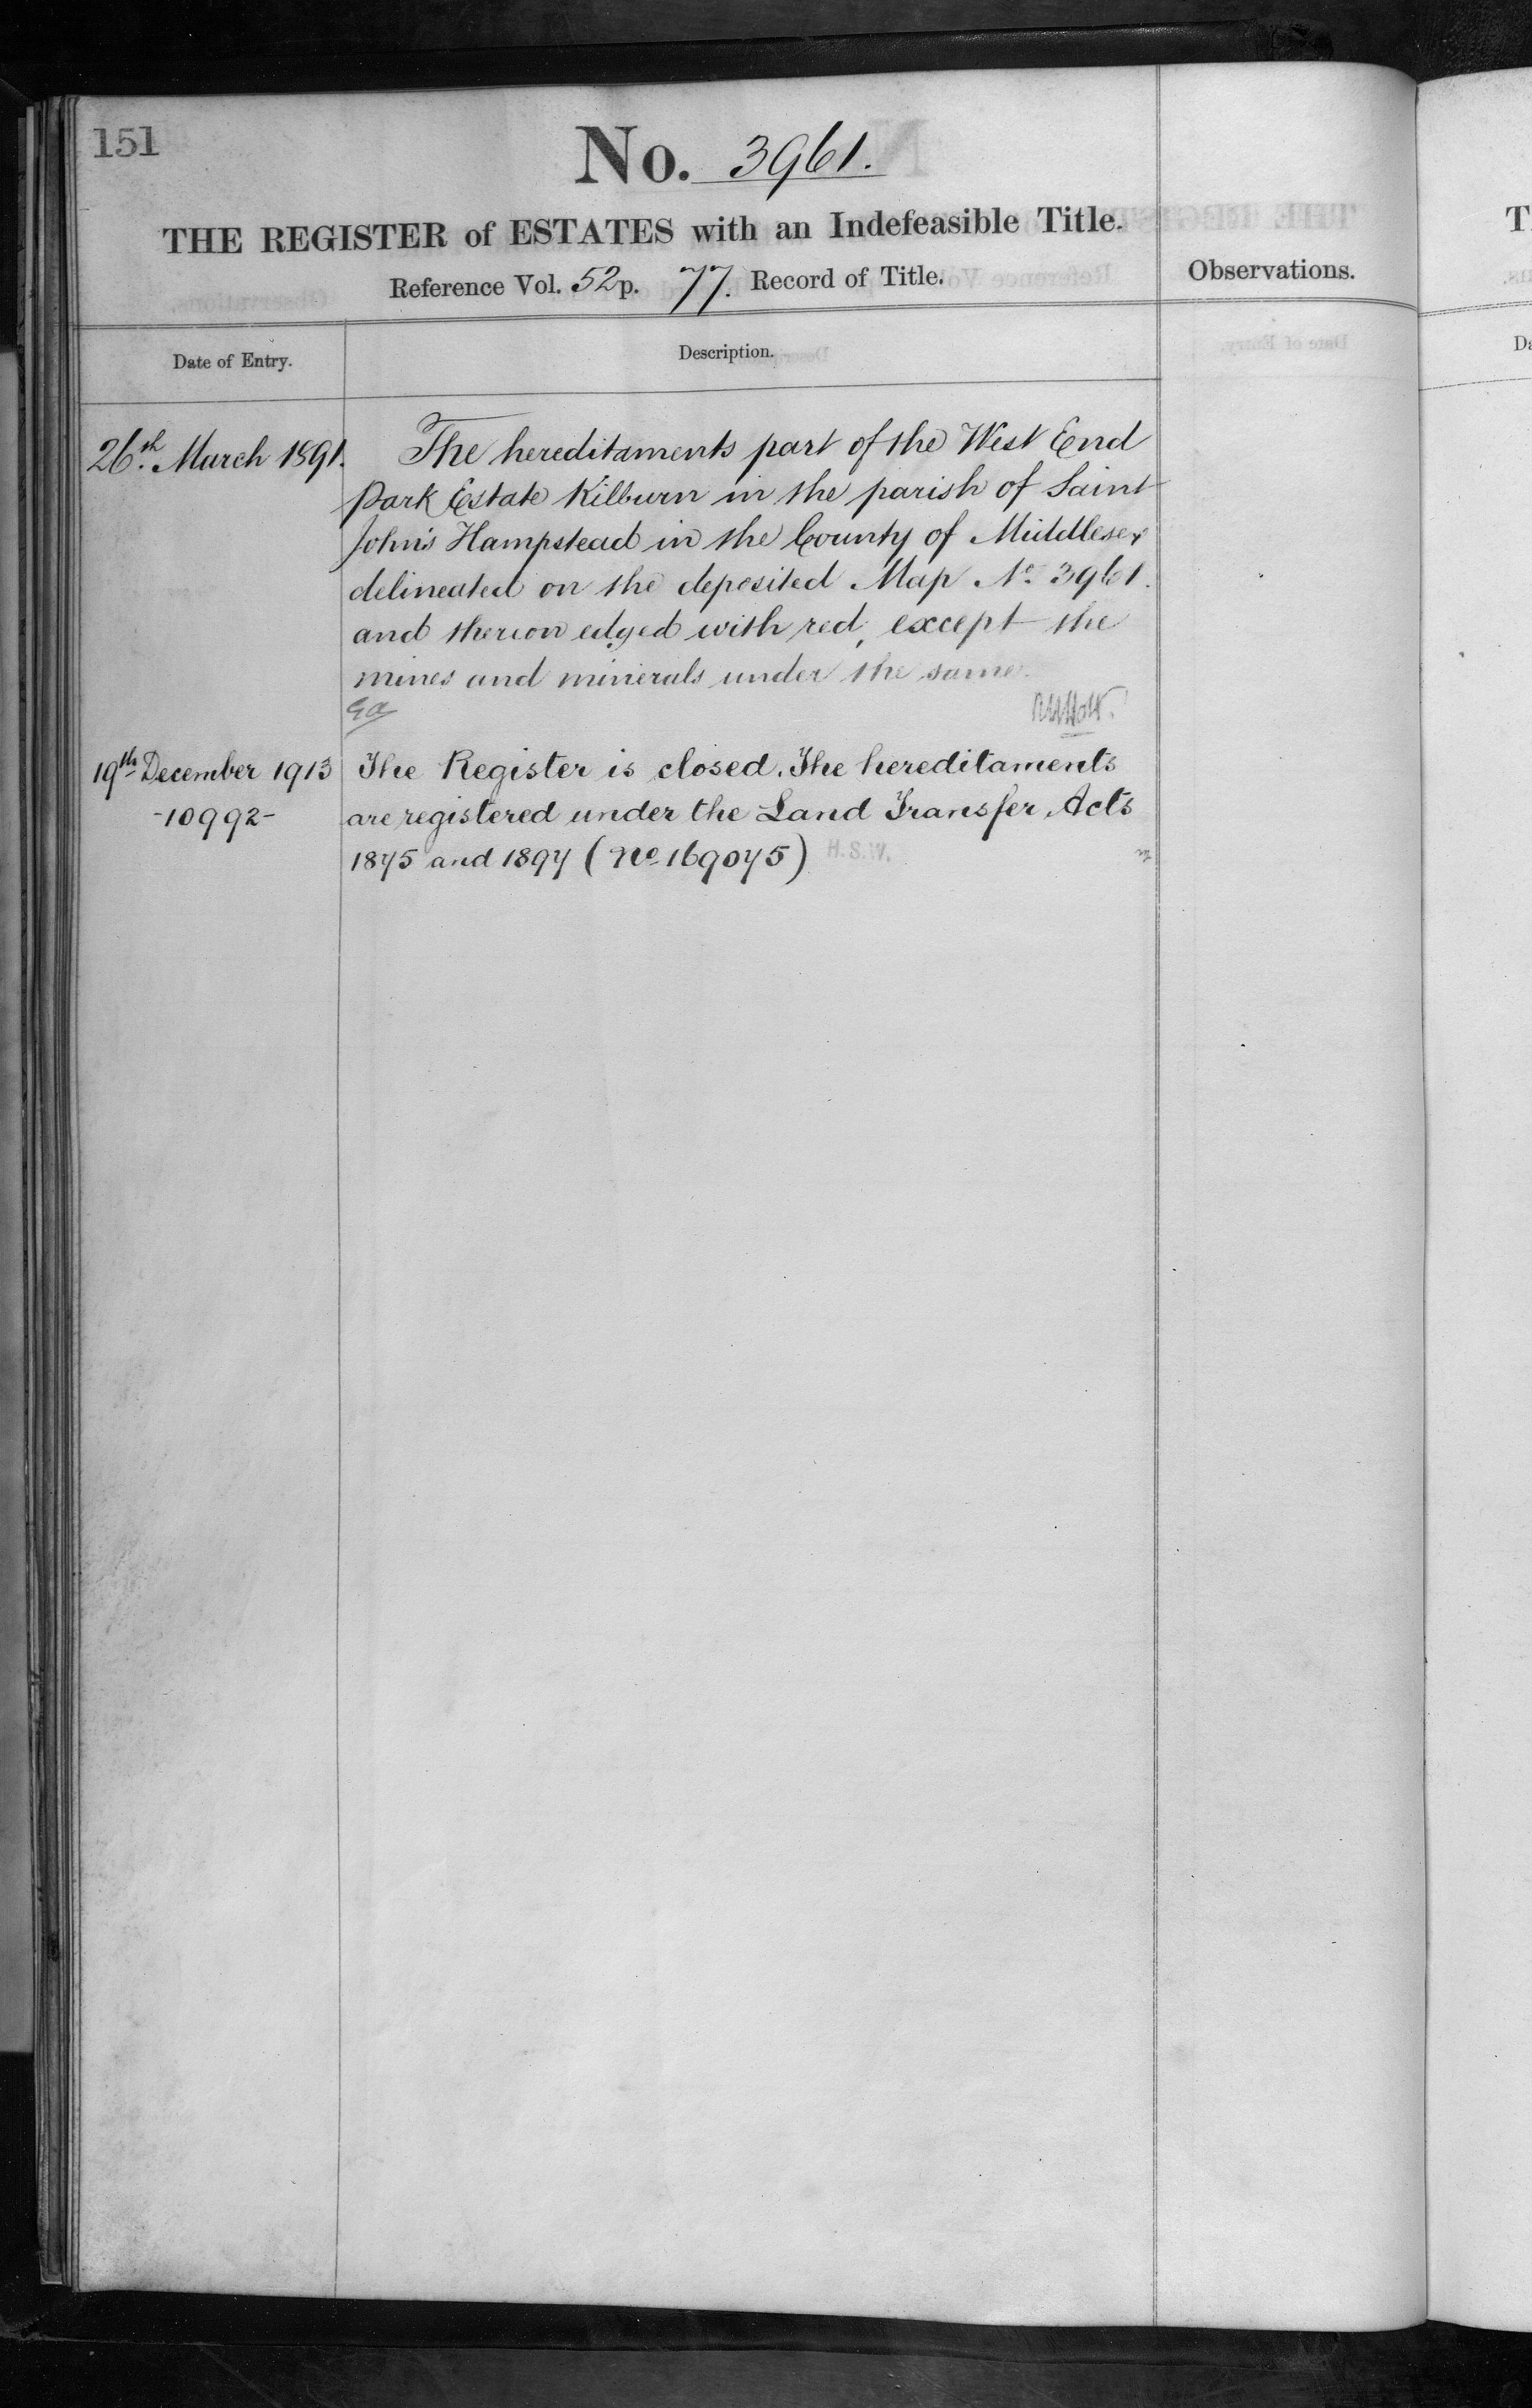 151
No. 3961.
THE REGISTER of ESTATES with an Indefeasible Title.
Reference Vol. 52 p. 77. Record of Title.
Observations.
Date of Entry.
Description.
26.th March 1891.
The hereditaments part of the West End
Park Estate Kilburn in the parish of Saint
John's Hampstead in the County of Middlesex
delineated on the deposited Map No. 3961.
and thereon edged with red, except the
mines and minerals under the same.
19th December 1913
-10992-
The Register is closed. The hereditaments
are registered under the Land Transfer Acts
1875 and 1897 (No. 169075) H.S.W.